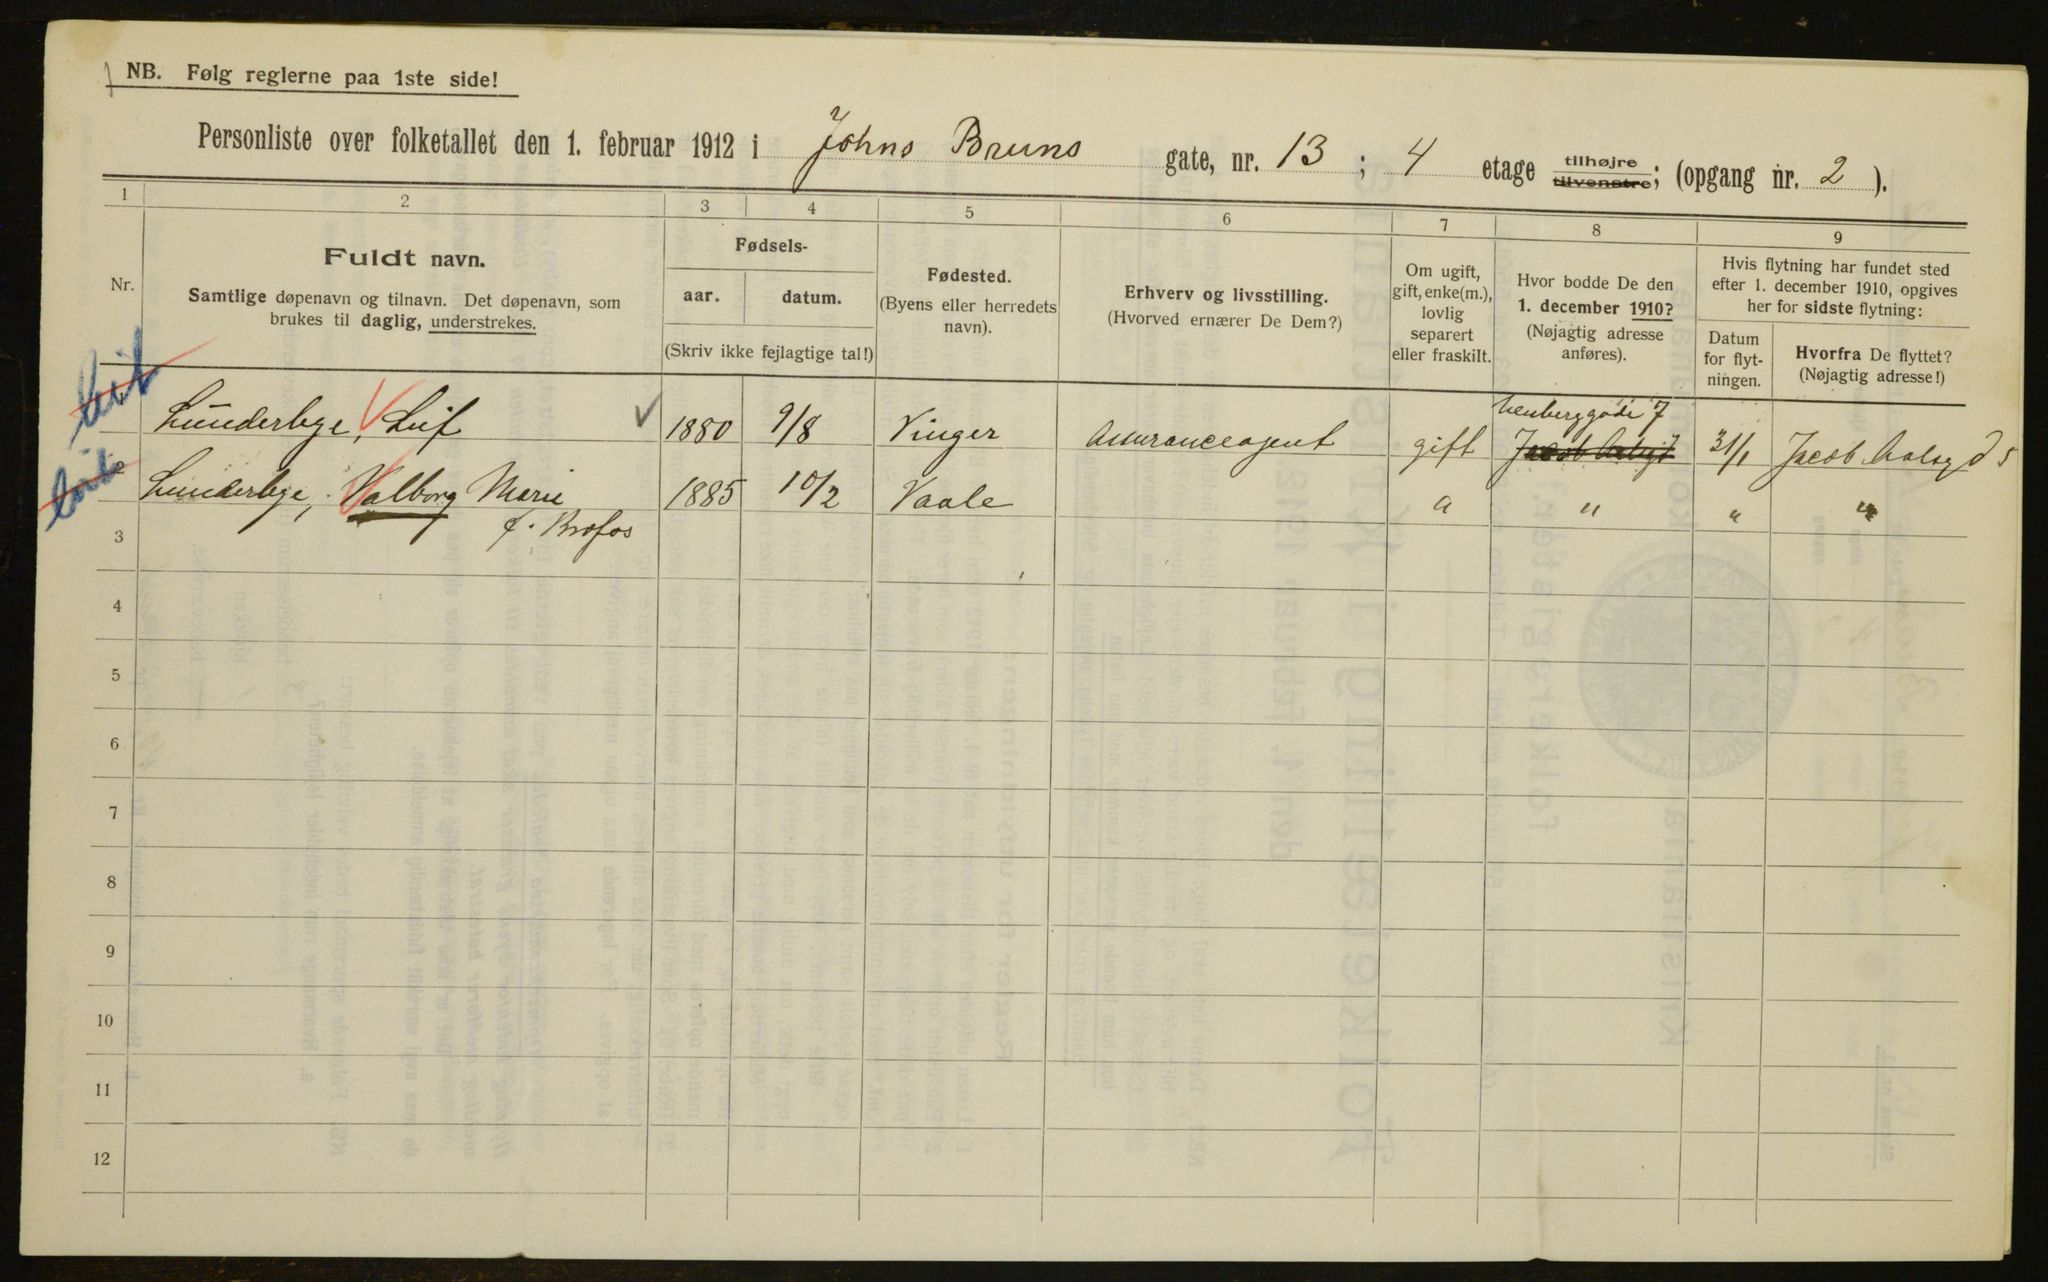 NB. Følg reglerne paa 1ste side!
Personliste over folketallet den 1. februar 1912 i Johns Bruns gate, nr. 13 ; 4 etage tilhøjre tilvenstre; (opgang nr. 2 ).
1 2 3 4 5 6 7 8 9
Nr.
Fuldt navn.
Samtlige døpenavn og tilnavn. Det døpenavn, som
brukes til daglig, understrekes.
Fødsels-
aar. datum.
(Skriv ikke fejlagtige tal!)
Fødested.
(Byens eller herredets
navn).
Erhverv og livsstilling.
(Hvorved ernærer De Dem?)
Om ugift,
gift, enke(m.),
lovlig
separert
eller fraskilt.
Hvor bodde De den
1. december 1910?
(Nøjagtig adresse
anføres).
Hvis flytning har fundet sted
efter 1. december 1910, opgives
her for sidste flytning:
Datum
for flyt-
ningen.
Hvorfra De flyttet?
(Nøjagtig adresse!)
7
Lunderbye, Leif 1880 9/8 Vinger Assuranceagent gift Jacob 31/1 Jacob Aalsgd 5
2 Lunderbye, Valborg Marie 1885 10/2 Vaale " " " "
f. Brofos
3
4
5
6
7
8
9
10
11
12